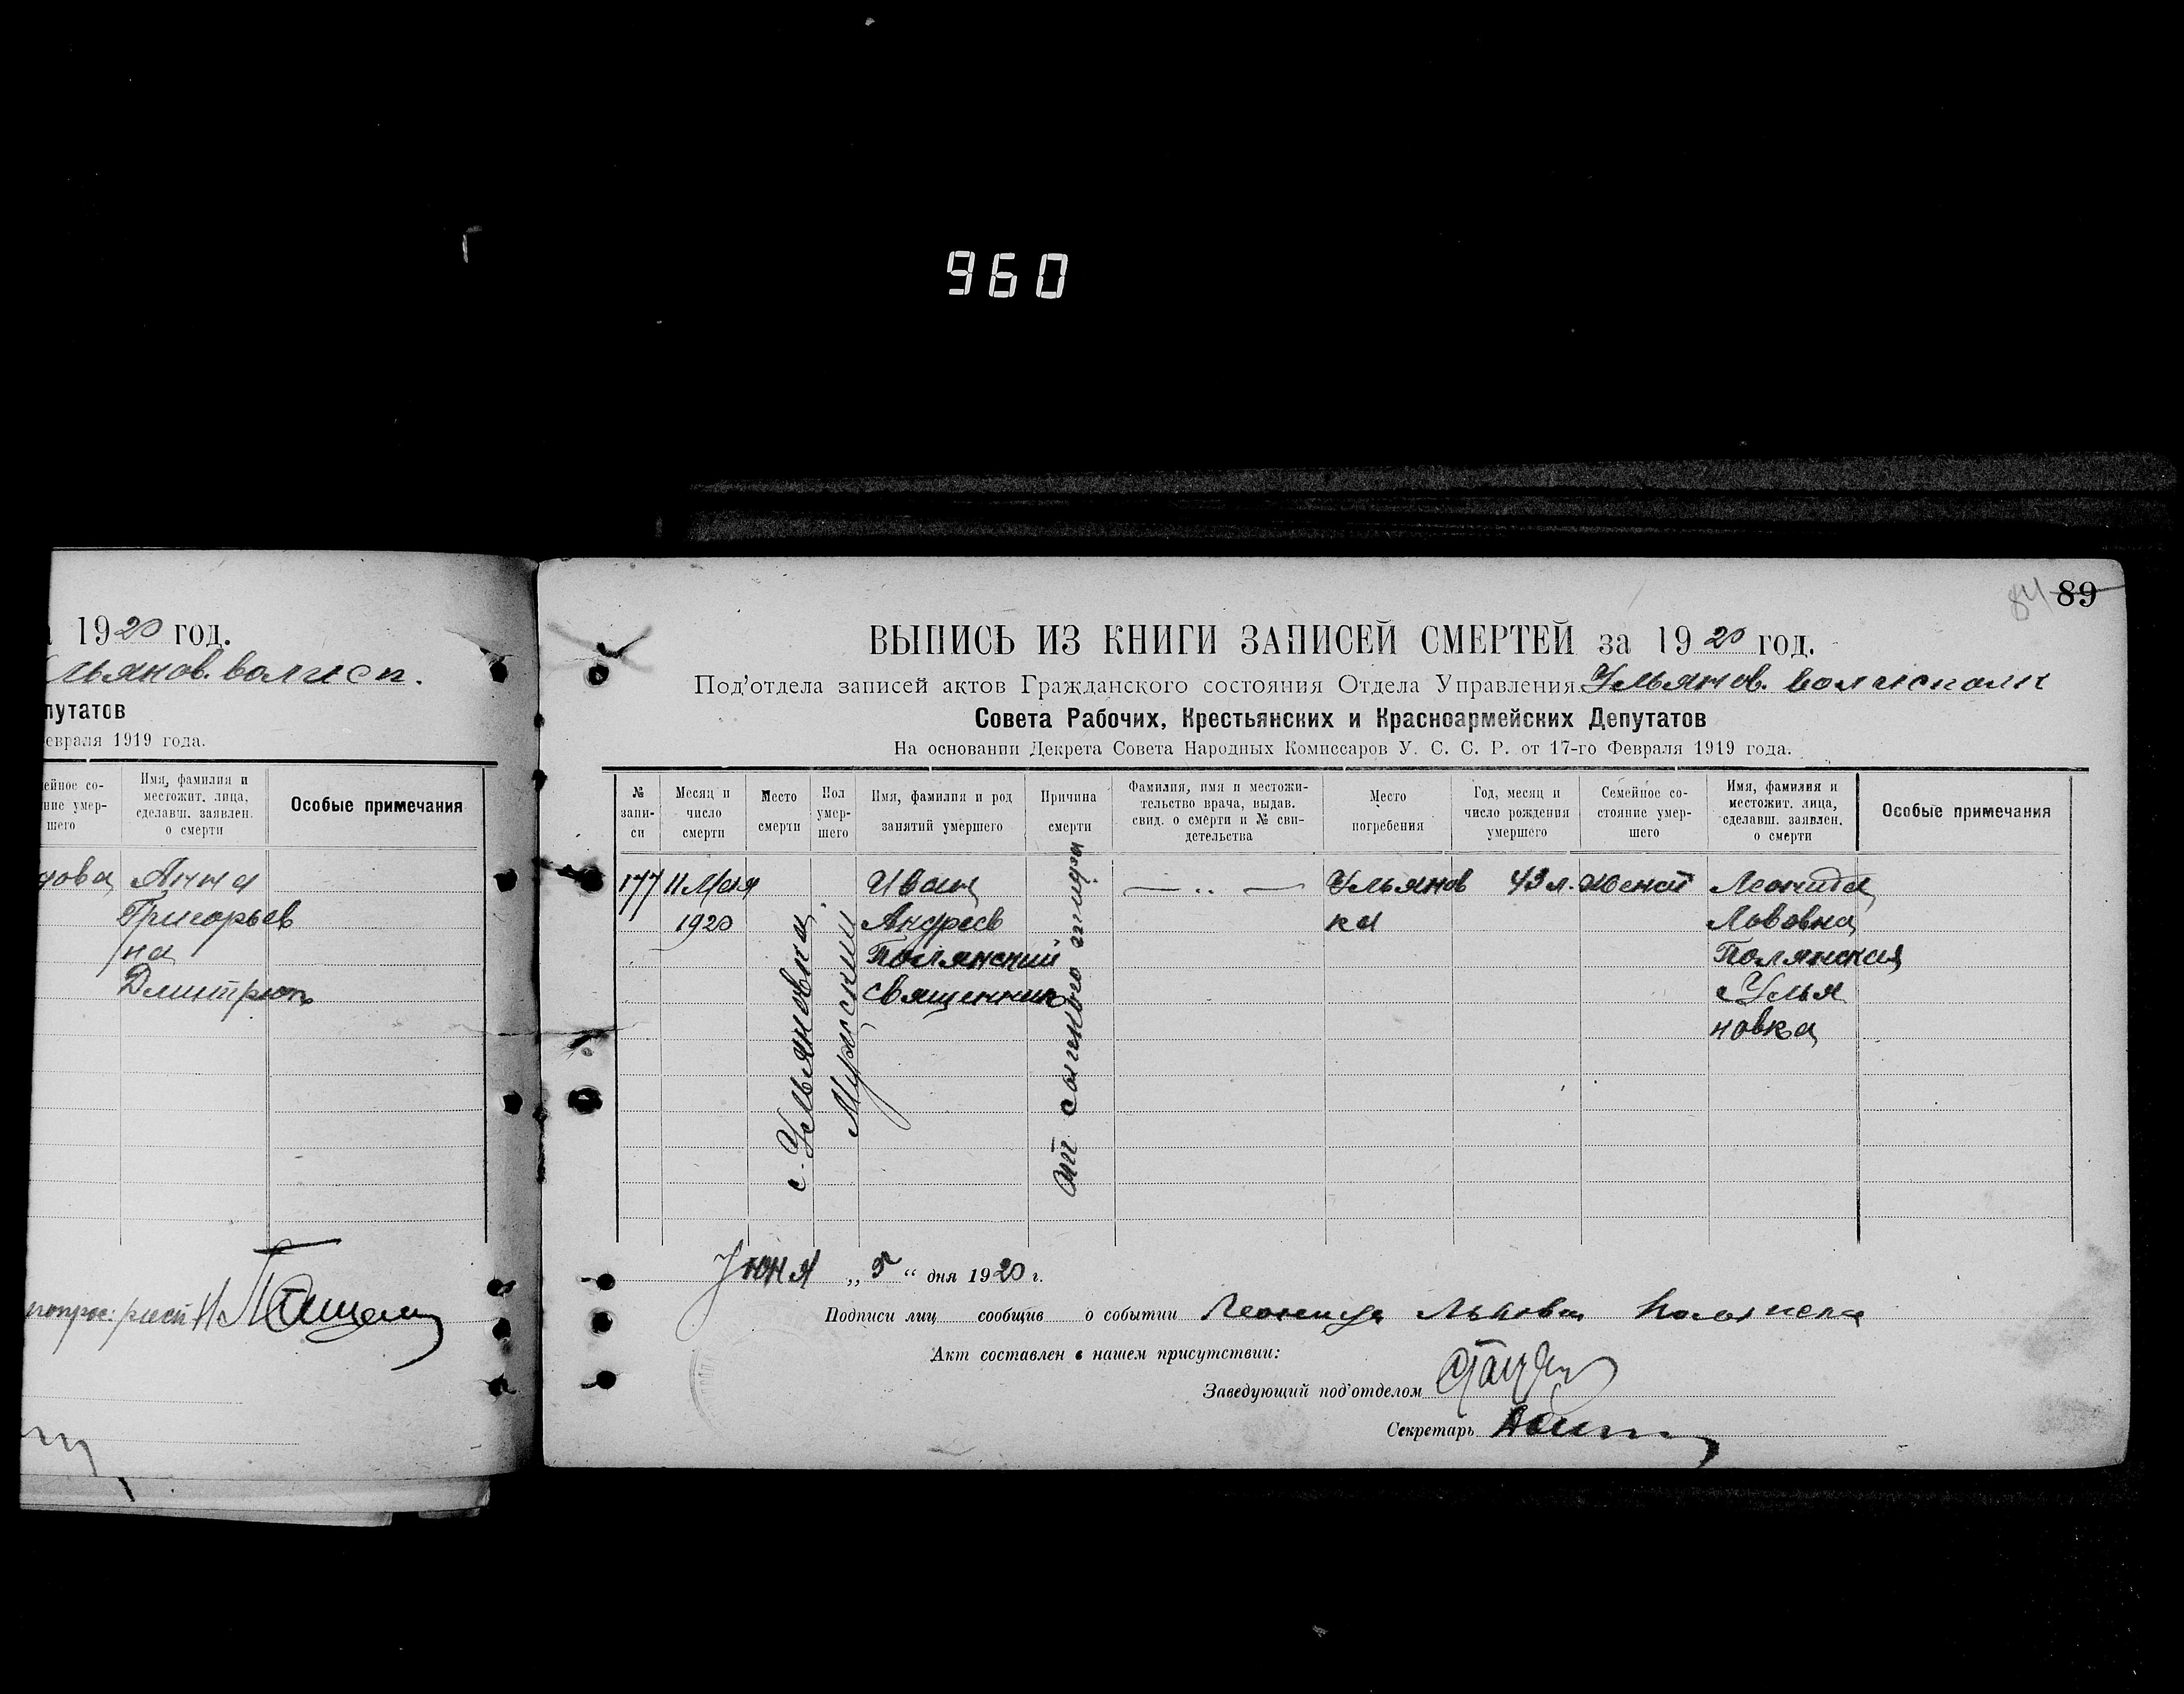 960
1920 год.
льянов. волисп.
путатов
евраля 1919 года.
ейное со-
ние умер-
шего
Имя, фамилия и
местожит. лица,
сделавш. заявлен.
о смерти
Особые примечания
дова
Анна
Григорьев
на
84 89
ВЫПИСЬ ИЗ КНИГИ ЗАПИСЕЙ СМЕРТЕЙ за 1920 год.
Под'отдела записей актов Гражданского состояния Отдела Управления Ульянов.
Совета Рабочих, Крестьянских и Красноармейских Депутатов
На основании Декрета Совета Народных Комиссаров У. С. С. Р. от 17-го Февраля 1919 года.
№
запи-
си
Месяц и
число
смерти
Место
смерти
Пол
умер-
шего
Имя, фамилия и род
занятий умершего
Причина
смерти
Фамилия, имя и местожи-
тельство врача, выдав.
свид. о смерти и № сви-
детельства
Место
погребения
Год, месяц и
число рождения
умершего
Семейное со-
стояние умер-
шего
Имя, фамилия и
местожит. лица,
сделавш. заявлен.
о смерти
Особые примечания
177
11 Мая
1920
с. Ульяновка
Мужский
Иван
Андреев
Полянский
священник
от сыпного тифа
— .. —
Ульянов
ка
43 л.
женат
Леонида
Лвовна
Полянская
с Улья
новка
Июня „ 5 “ дня 1920 г.
Подписи лиц сообщив о событии Леонида Львовн
Акт составлен в нашем присутствии:
Заведующий под'отделом
Секретарь